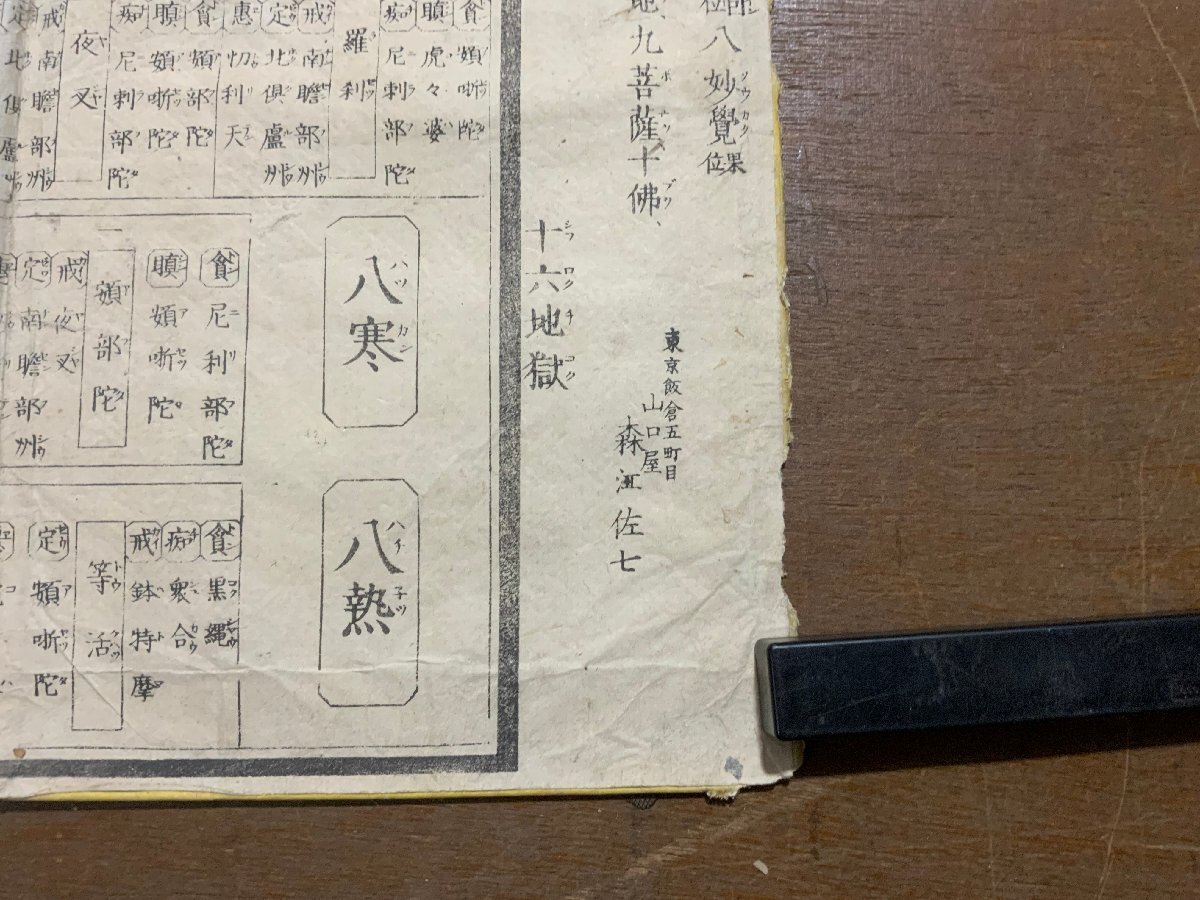 位八妙覺果位
地九菩薩十佛、
東京飯倉五町目
山口屋
森江佐七
十六地獄
貪頞哳陀
瞋虎々婆
痴尼刺部陀
羅刹
戒南瞻部州
定北倶盧州
惠忉利天
貪頞部陀
瞋頞哳陀
痴尼刺部陀
夜叉
戒南瞻部州
定北倶盧州
八寒
貪尼利部陀
瞋頞哳陀
頞部陀
戒夜叉
定南瞻部州
八熱
貪黒縄
痴衆合
戒鉢特摩
等活
定頞哳陀